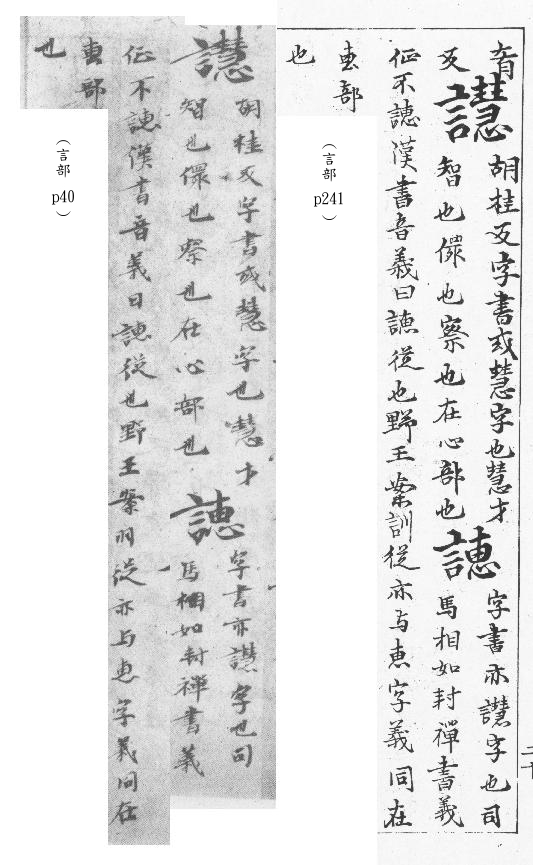 反
譿
胡桂反字書或慧字也慧才
智也儇也察也在心部也
譓
字書亦譿字也司
馬相如封禪書義
征不譓漢書音義曰譓從也野王案訓從亦与恵字義同在
恵部
也
（言部 p241）
譿
胡桂反字書或慧字也慧才
智也儇也察也在心部也
譓
字書亦譿字也司
馬相如封禪書義
征不譓漢書音義曰譓從也野王案羽從亦与恵字義同在
恵部
也
（言部 p40）